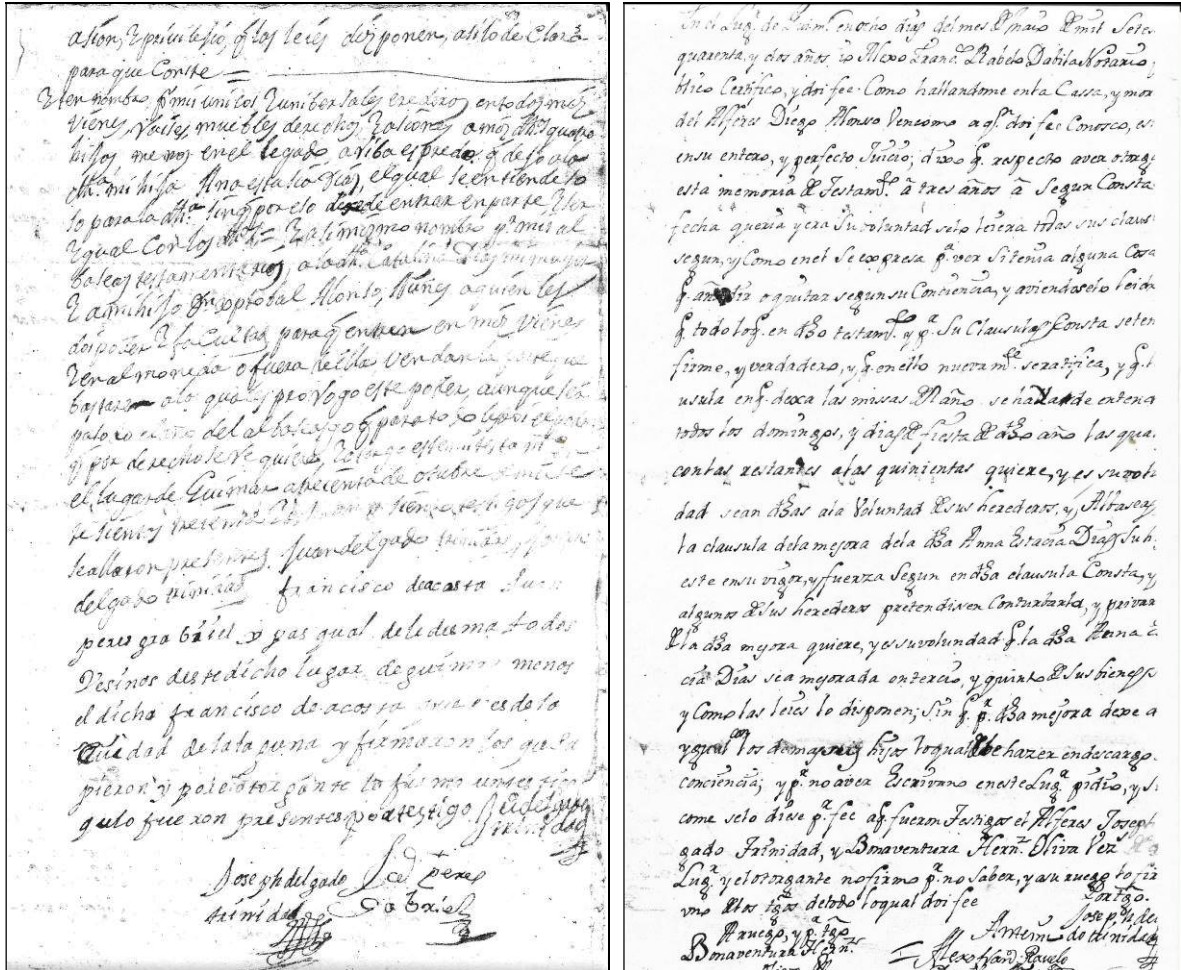 asion, y privilesio, q los leies disponen, asilo declaro
para que Conste
Yten nombro p mi unicos y unibersales erederos en todos mis
vienes, Raises, muebles derechos, y asiones a mis dhos quatro
hijos menos en el legado, ariba espredo, q dejo a la
dha mi hija Anaestasia Dias, el qual se entiende so
lo para la dha sin q por eso deje de entrar en parte
Ygual Con los dhos = Y asimismo nombro p mis al
baseas testamentarios, a la dha Catalina Dias mi muger
Y a mi hijo Cristobal Alonso Nuñes a quien les
doi poder Y facultad para q entren en mis vienes
Y en almoneda o fuera de ella vendan la parte que
bastare a lo qual prorogo este poder, aunque sea
pasado el año del albaseasgo q para todo
q por derecho se Requiere, Y otorgo este mi testamto en
el lugar de Guimar a treienta de otubre de mil se
tesientos treienta testigos que
se allaron presentes Juan delgado trinidad, Joseph
delgado trinidad francisco de acosta Juan
peres grabiel y pasqual de ledesma todos
Vesinos deste dicho lugar de guimar menos
el dicho francisco de acosta que es de la
Ciudad de la laguna y firmaron los que su
pieron y por el otorgante lo firmo un testi
gulo fueron presentes por testigo Ju delgado
trinidad
Joseph delgado Ju peres
trinidad Gabriel
En el Lugr de Guimr en ocho dias del mes de Maio de mil Sete
quarenta, y dos años io Alexo Franco Rabelo Dabila Notario
blico Certifico, y doi fee Como hallandome en la Cassa, y mor
del Alferes Diego Alonso Vencomo a qn doi fee Conosco, es
en su entero, y perfecto Juicio; dixo q. respecto aver otorg
esta memoria de Testamto â tres años â Segun Consta
fecha queria y era Su voluntad se lo leiera todas sus claus
segun, y Como en el Se expresa pa ver Si tenia alguna Cosa
q. añadir o quitar segun su Conciencia, y aviendoselo leido
q. todo lo q. en dho testamto y pr Su Clausulas Consta se ten
firme, y verdadero, y q. en ello nuevamte se ratifica, y q. l
usula en q. dexa las missas del año se ha de enten
todos los domingos, y dias de fiesta de dho año las qua
con las restantes a las quinientas quiere, y es su volu
dad sean dhas a la Voluntad de sus herederos, y Albaseas
la clausula de la mejora de la dha Anna Estacia Dias Su h
este en su vigor, y fuerza Segun en dha clausula Consta, y
algunos de Sus herederos pretendisen Conturbarla, y privar
de la dha mejora quiere, y es su volundad q la dha Anna
cia Dias sea mejorada en tercio, y quinto de Sus bienes
y Como las leies lo disponen; Sin q. pr dha mejora dexe
ygual con los demas sus hijos lo qual debe hazer en descargo
conciencia; y pr no aver Escrivano en este Lugr pidio, y
come se lo diese pr fee a q. fueron Testigos el Alferes Joseph
gado Trinidad, y Bonaventura Hernz Oliva Vez
Lugr y el otorgante no firmo pr no Saber, y a su ruego lo fir
vno de los tgos de todo lo qual doi fee
Por tgo.
Joseph del
A ruego, y pr tgo Antemi do trinidad
Bonaventura Hernz Alexo Franco Ravelo
Oliva